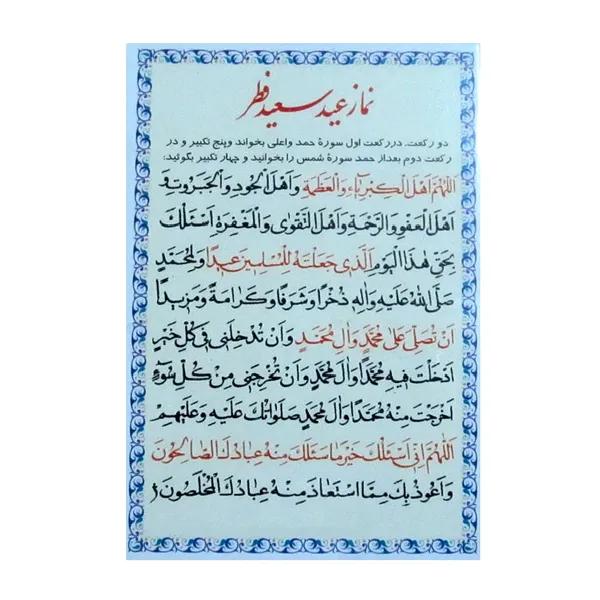 نماز عید سعید فطر
دو رکعت. در رکعت اول سورهٔ حمد واعلی بخواند وپنج تکبیر و در
رکعت دوم بعداز حمد سورهٔ شمس را بخوانید و چهار تکبیر بگوئید:
اَللّهُمَّ اَهْلَ الْكِبْرِيآءِ وَالْعَظَمَةِ وَاَهْلَ الْجُودِ وَالْجَبَرُوتِ وَ
اَهْلَ الْعَفْوِ وَالرَّحْمَةِ وَاَهْلَ التَّقْوٰى وَالْمَغْفِرَةِ اَسْئَلُكَ
بِحَقِّ هٰذَا الْيَوْمِ الَّذى جَعَلْتَهُ لِلْمُسْلِمينَ عيداً وَلِمُحَمَّدٍ
صَلَّى اللهُ عَلَيْهِ وَالِهِ ذُخْراً وَشَرَفاً وَكَرامَةً وَمَزيداً
اَنْ تُصَلِّىَ عَلىٰ مُحَمَّدٍ وَالِ مُحَمَّدٍ وَاَنْ تُدْخِلَنى فى كُلِّ خَيْرٍ
اَدْخَلْتَ فيهِ مُحَمَّداً وَالَ مُحَمَّدٍ وَاَنْ تُخْرِجَنى مِنْ كُلِّ سُوۤءٍ
اَخْرَجْتَ مِنْهُ مُحَمَّداً وَالَ مُحَمَّدٍ صَلَواتُكَ عَلَيْهِ وَعَلَيْهِمْ
اَللّهُمَّ اِنّى اَسْئَلُكَ خَيْرَ ما سَئَلَكَ مِنْهُ عِبادُكَ الصّالِحُونَ
وَاَعُوذُ بِكَ مِمَّا اسْتَعاذَ مِنْهُ عِبادُكَ الْمُخْلَصُونَ